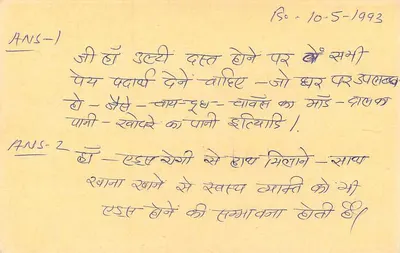 दि:- 10-5-1993
ANS-1
जी हाँ उल्टी दस्त होने पर वे सभी
पेय पदार्थ देनें चाहिए - जो घर पर उपलब्ध
हो - जैसे - चाय - दूध - चावँल का माँड - दाल का
पानी - खोपरे का पानी इत्यादि /
ANS-2
हाँ - एड्स रोगी से हाथ मिलाने - साथ
खाना खाने से स्वस्थ व्यक्ति को भी
एड्स होने की सम्भावना होती है /